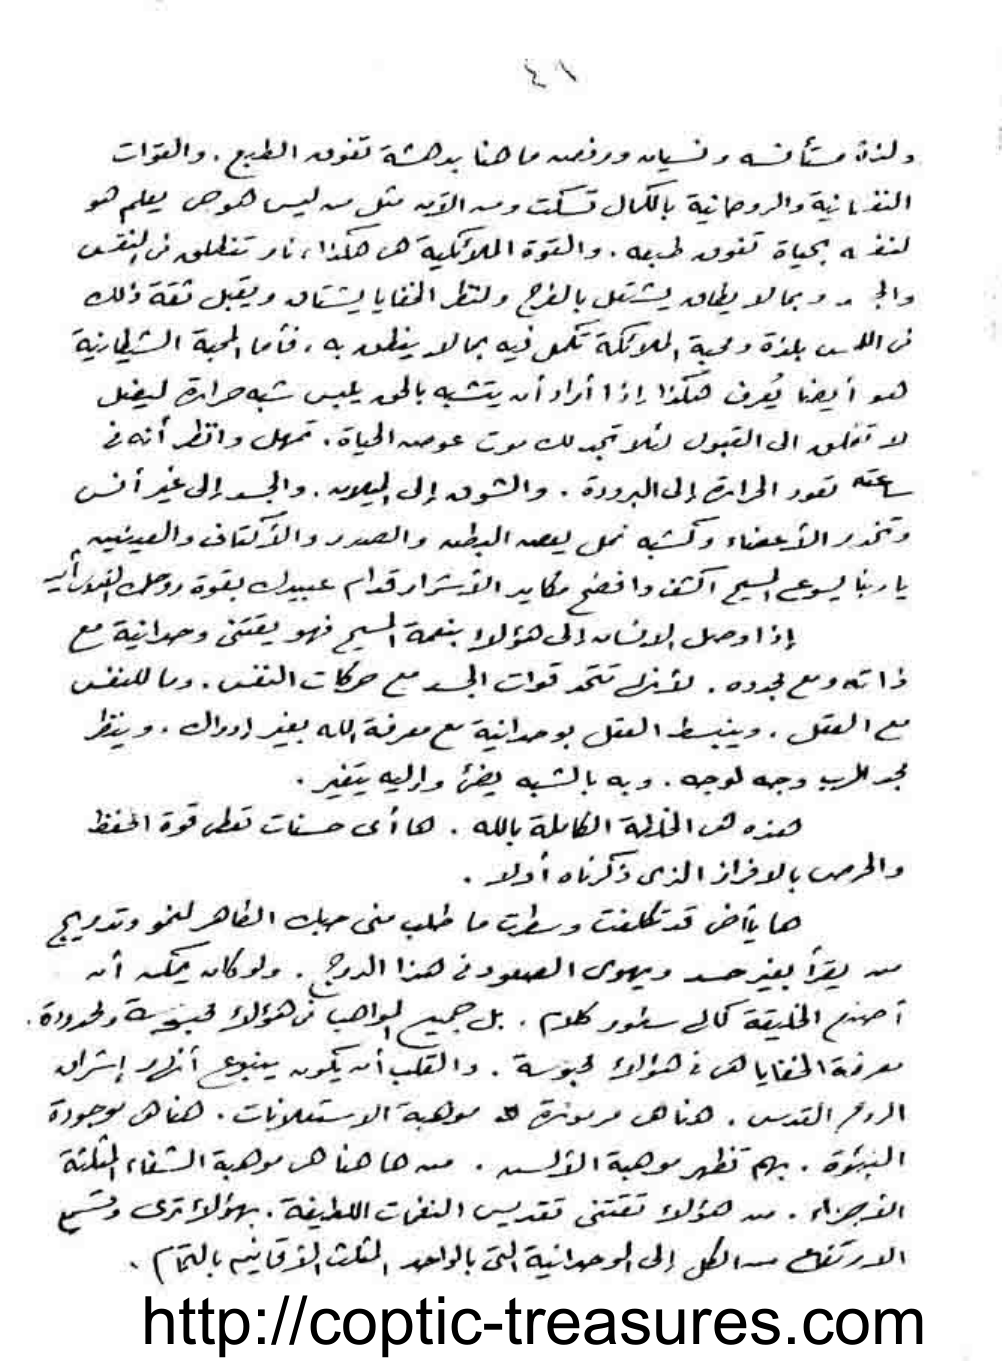 ٤١
ولذة مستأنسه ونسيان ورفض ما هنا بدهشة تفوق الطبع . والقوات
النفسانية والروحانية بالكمال تسكت ومن الآن مثل من ليس هو حى يعلم هو
لنفسه بحياة تفوق طبعه . والقوة الملائكية هى هكذا ، نار تنطلق فى النفس
والجسد وبما لا يطاق يشتعل بالفرح ولنظر الخفايا يشتاق ويقبل ثقة ذلك
فى اللمس بلذة ومحبة الملائكة تكمل فيه بما لا ينطق به . فأما المحبة الشيطانية
هو أيضا يُعرف هكذا إذا أراد أن يتشبه بالحق يلبس شبه حرارة ليضل
لا تقلق الى القبول لئلا تجد لك موت عوض الحياة . تمهل وانظر أنه فى
ساعته تعود الحرارة إلى البرودة . والشوق إلى الميلان . والجسد إلى غير أنس
وتخدر الأعضاء وكشبه نمل يعض البطن والصدر والأكتاف والعينين
يا ربنا يسوع المسيح اكشف وافضح مكايد الأشرار قدام عبيدك بقوة روحك القدوس آمين
إذا وصل الإنسان إلى هؤلاء بنعمة المسيح فهو يقتنى وحدانية مع
ذاته ومع مجده . لأنه تتحد قوات الجسد مع حركات النفس . وما للنفس
مع العقل . وينبسط العقل بوحدانية مع معرفة الله بغير إدراك . وينظر
مجد الرب وجه لوجه . وبه بالشبه يضئ وإليه يتغير .
هذه هى الخلطة الكاملة بالله . ها أى حسنات تعطى قوة الحفظ
والحرص بالافراز الذى ذكرناه أولا .
ها يا أخى قد تكلفت وسطرت ما طلب منى حبك الظاهر لنمو وتدريج
من يقرأ بغير حسد ويهوى الصعود فى هذا الدرج . ولو كان يمكن أن
أصنع الخليقة كالى سطور كلام . بل جميع المواهب فى هؤلاء محبوسة ومحدودة .
معرفة الخفايا هى فى هؤلاء محبوسة . والقلب أن يكون ينبوع أنهار إشراق
الروح القدس . هنا هى مرموزة موهبة الاستعلانات . هنا هى موجودة
النبوة . بهم تظهر موهبة الألسن . من ها هنا هى موهبة الشفاء المثلثة
الأجزاء . من هؤلاء تقتنى تقديس النغمات اللطيفة . بهؤلاء ترى وتسمع
الارتفاع من الكل إلى الوحدانية التى بالواحد المثلث الأقانيم بالتمام .
http://coptic-treasures.com